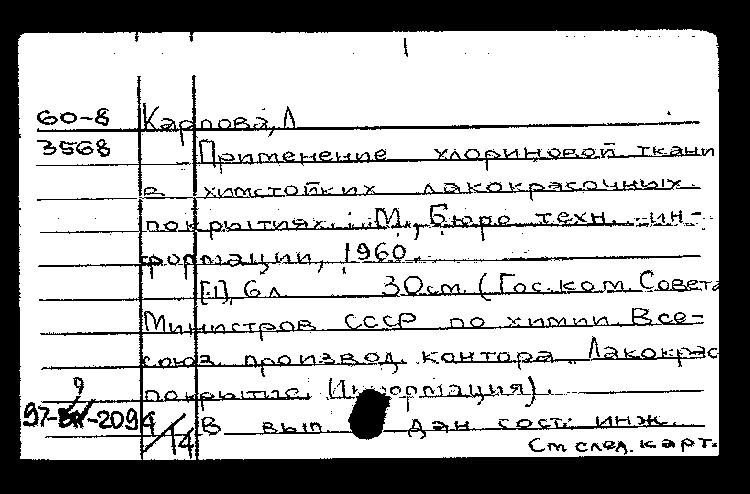 60-8 Карпова, Л
3568 Применение хлориновой ткани
в химстойких лакокрасочных
покрытиях. М., Бюро техн. ин-
формации, 1960.
[1], 6 л. 30см. (Гос. ком. Совета
Министров СССР по химии. Все-
союз. производ. контора Лакокрас
покрытие. (Информация).
В вып. дан сост: инж.
См след. карт.